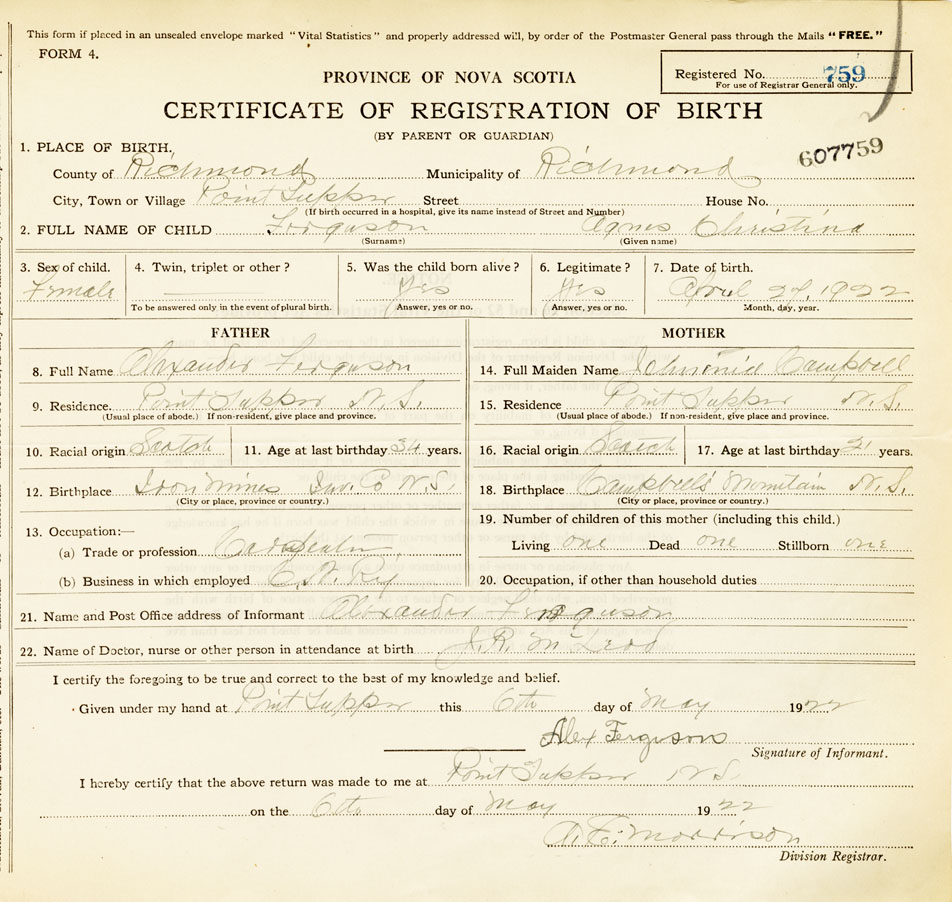 This form if placed in an unsealed envelope marked "Vital Statistics" and properly addressed will, by order of the Postmaster General pass through the Mails "FREE."
FORM 4.
PROVINCE OF NOVA SCOTIA
Registered No. 759
For use of Registrar General only.
CERTIFICATE OF REGISTRATION OF BIRTH
(BY PARENT OR GUARDIAN)
607759
1. PLACE OF BIRTH.
County of Richmond Municipality of Richmond
City, Town or Village Point Tupper Street House No.
(If birth occurred in a hospital, give its name instead of Street and Number)
2. FULL NAME OF CHILD Ferguson Agnes Christina
(Surname) (Given name)
3. Sex of child. 4. Twin, triplet or other? 5. Was the child born alive? 6. Legitimate? 7. Date of birth.
Female Yes Yes April 27, 1922
To be answered only in the event of plural birth. Answer, yes or no. Answer, yes or no. Month, day, year.
FATHER MOTHER
8. Full Name Alexander Ferguson 14. Full Maiden Name Campbell
9. Residence. Point Tupper N.S. 15. Residence Point Tupper N.S.
(Usual place of abode.) If non-resident, give place and province. (Usual place of abode.) If non-resident, give place and province.
10. Racial origin Scotch 11. Age at last birthday 34 years. 16. Racial origin Scotch 17. Age at last birthday years.
12. Birthplace Iron Mines Inv. Co N.S. 18. Birthplace Campbell's Mountain N.S.
(City or place, province or country.) (City or place, province or country.)
13. Occupation:— 19. Number of children of this mother (including this child.)
(a) Trade or profession Living one Dead one Stillborn one
(b) Business in which employed C.N. Ry 20. Occupation, if other than household duties
21. Name and Post Office address of Informant Alexander Ferguson
22. Name of Doctor, nurse or other person in attendance at birth J.R. McLeod
I certify the foregoing to be true and correct to the best of my knowledge and belief.
Given under my hand at Point Tupper this 6th day of May 1922
Alex Ferguson
Signature of Informant.
I hereby certify that the above return was made to me at Point Tupper N.S.
on the 6th day of May 1922
A. E. Morrison
Division Registrar.